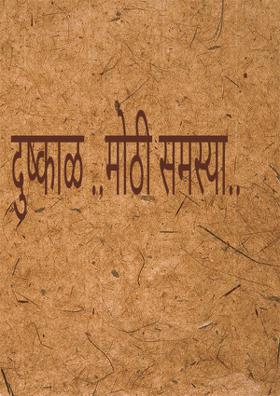 दुष्काळ ..मोठी समस्या..